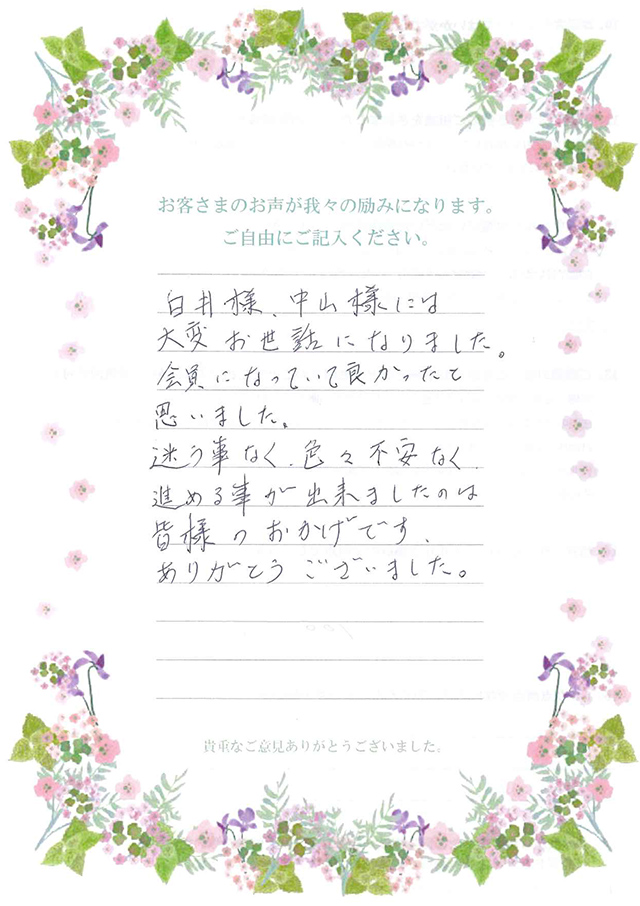 お客さまのお声が我々の励みになります。
ご自由にご記入ください。
白井様、中山様には
大変お世話になりました。
会員になっていて良かったと
思いました。
迷う事なく、色々不安なく、
進める事が出来ましたのは
皆様のおかげです、
ありがとうございました。
貴重なご意見ありがとうございました。